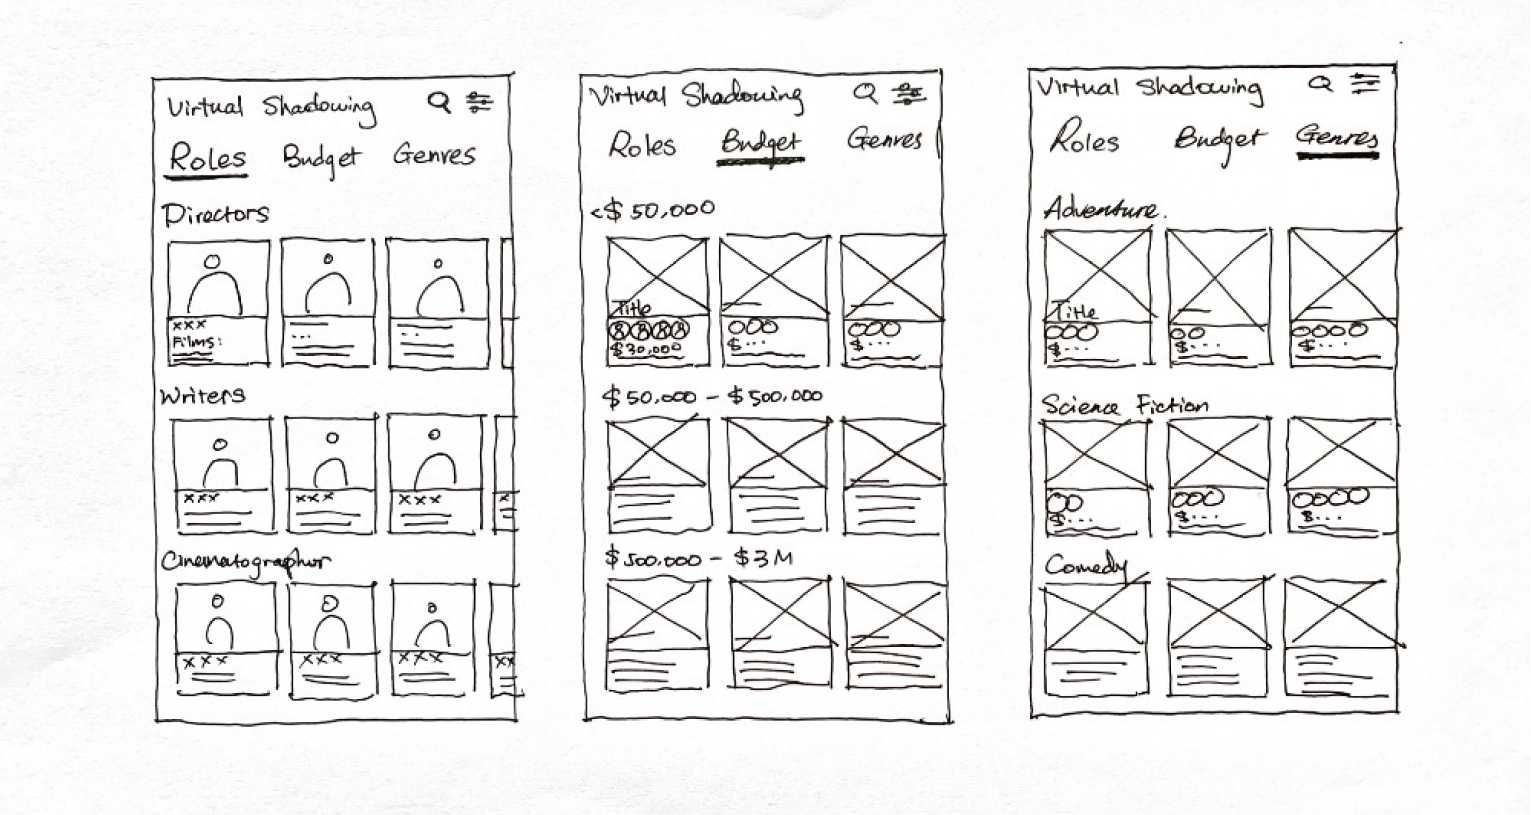 Virtual Shadowing
Roles Budget Genres
Directors
xxx
Films:
Writers
xxx xxx xxx x
Cinematographer
xxx xxx xxx xx
Virtual Shadowing
Roles Budget Genres
<$50,000
Title
$30,000 $... $...
$50,000 - $500,000
$500,000 - $3M
Virtual Shadowing
Roles Budget Genres
Adventure.
Title
$... $... $...
Science Fiction
$... $... $...
Comedy